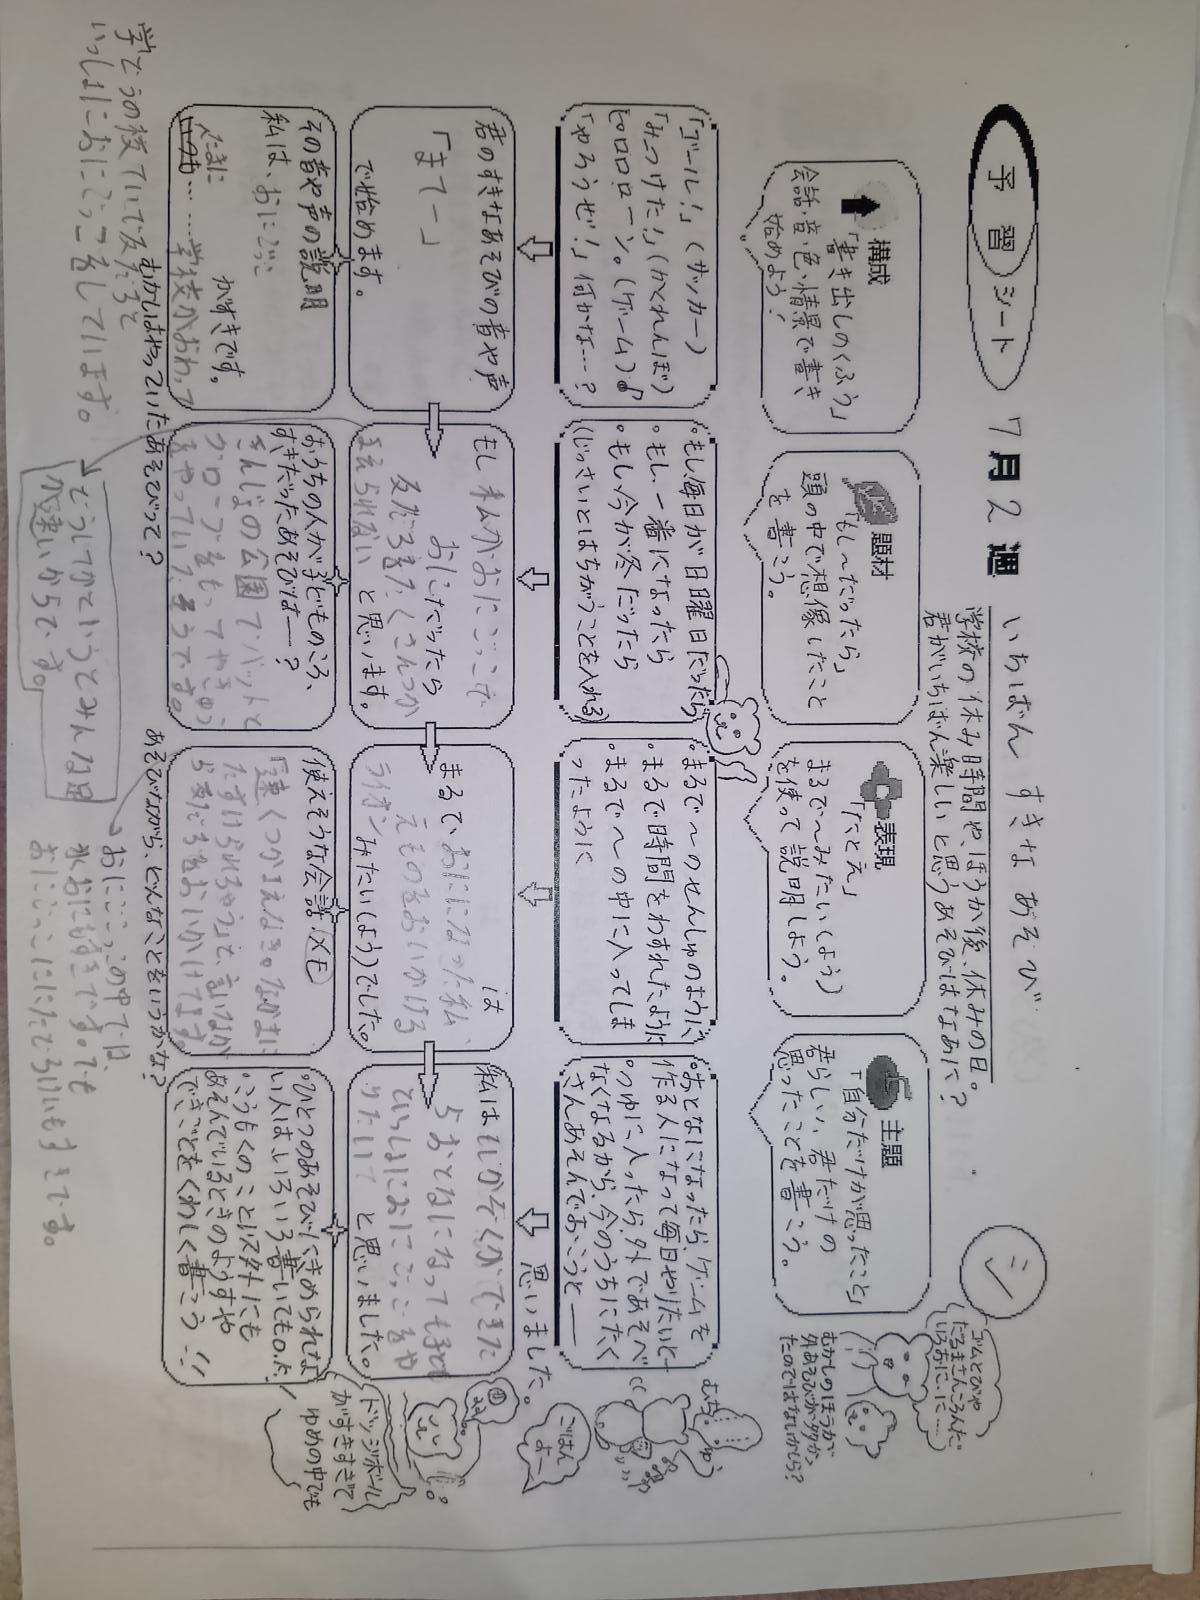 予習シート 7月2週 いちばん すきな あそび
学校の休み時間や、ほうか後、休みの日。
君がいちばん楽しいと思うあそびはなあに?
シ
構成
「書き出しのくふう」
会話・音・色・情景で書き
始めよう!
題材
「もし〜だったら」
頭の中で想像したこと
を書こう。
表現
「たとえ」
まるで〜みたい(よう)
を使って説明しよう。
主題
「自分だけが思ったこと」
君らしい、君だけの
思ったことを書こう。
ゴムとびや
だるまさんころんだ
いろおに、に……
むかしのほうが
外あそびが多かっ
たのではないかしら?
「ゴール!」(サッカー)
「みつけた!」(かくれんぼ)
ピロロローン。(ゲーム)♪
「やろうぜ!」何かな…?
。もし、毎日が日曜日だったら
。もし、一番になったら
。もし、今が冬だったら
(じっさいとはちがうことを入れる)
。まるで〜のせんしゅのように、
。まるで時間をわすれたように
。まるで〜の中に入ってしま
ったように
。おとなになったら、ゲームを
作る人になって毎日やりたいと—
。つゆに入ったら、外であそべ
なくなるから、今のうちにたく
さんあそんでおこうと——
思いました。
ごはん
よー
君のすきなあそびの音や声
「まてー」
で始めます。
もし 私がおにごっこで
おにだったら
友だちをたくさんつか
まえられない と思います。
まるで、おにになった私 は
えものをおいかける
ライオン みたい(よう)でした。
私は もしかぞくができた
らおとなになっても
いっしょにおにごっこをや
りたいて と思いました。
その音や声の説明
私は、おにごっこ
がすきです。
たまに
……学校がおわって
学どうの校ていで友だちと
いっしょにおにごっこをしています。
むかしはやっていたあそびって?
おうちの人が子どものころ、
すきだったあそびは—?
きんじょの公園でバットと
グローブをもってやきゅう
をやっていたそうです。
どうしてかというとみんな足
が速いからです。
使えそうな会話メモ
「速くつかまえなきゃ。なかまに
たすけられちゃう」と、言いなが
ら友だちをおいかけてます。
あそびながら、どんなことをいうかな?
おにごっこの中では、
氷おにもすきです。ても
おにごっこににたどろけいもすきです。
。ひとつのあそびにきめられな
い人はいろいろ書いてもO.K!
。こうもくのこと以外にも
あそんでいるときのようすや
できごとをくわしく書こう!!
ドッジボール
がすきすぎて
ゆめの中でも